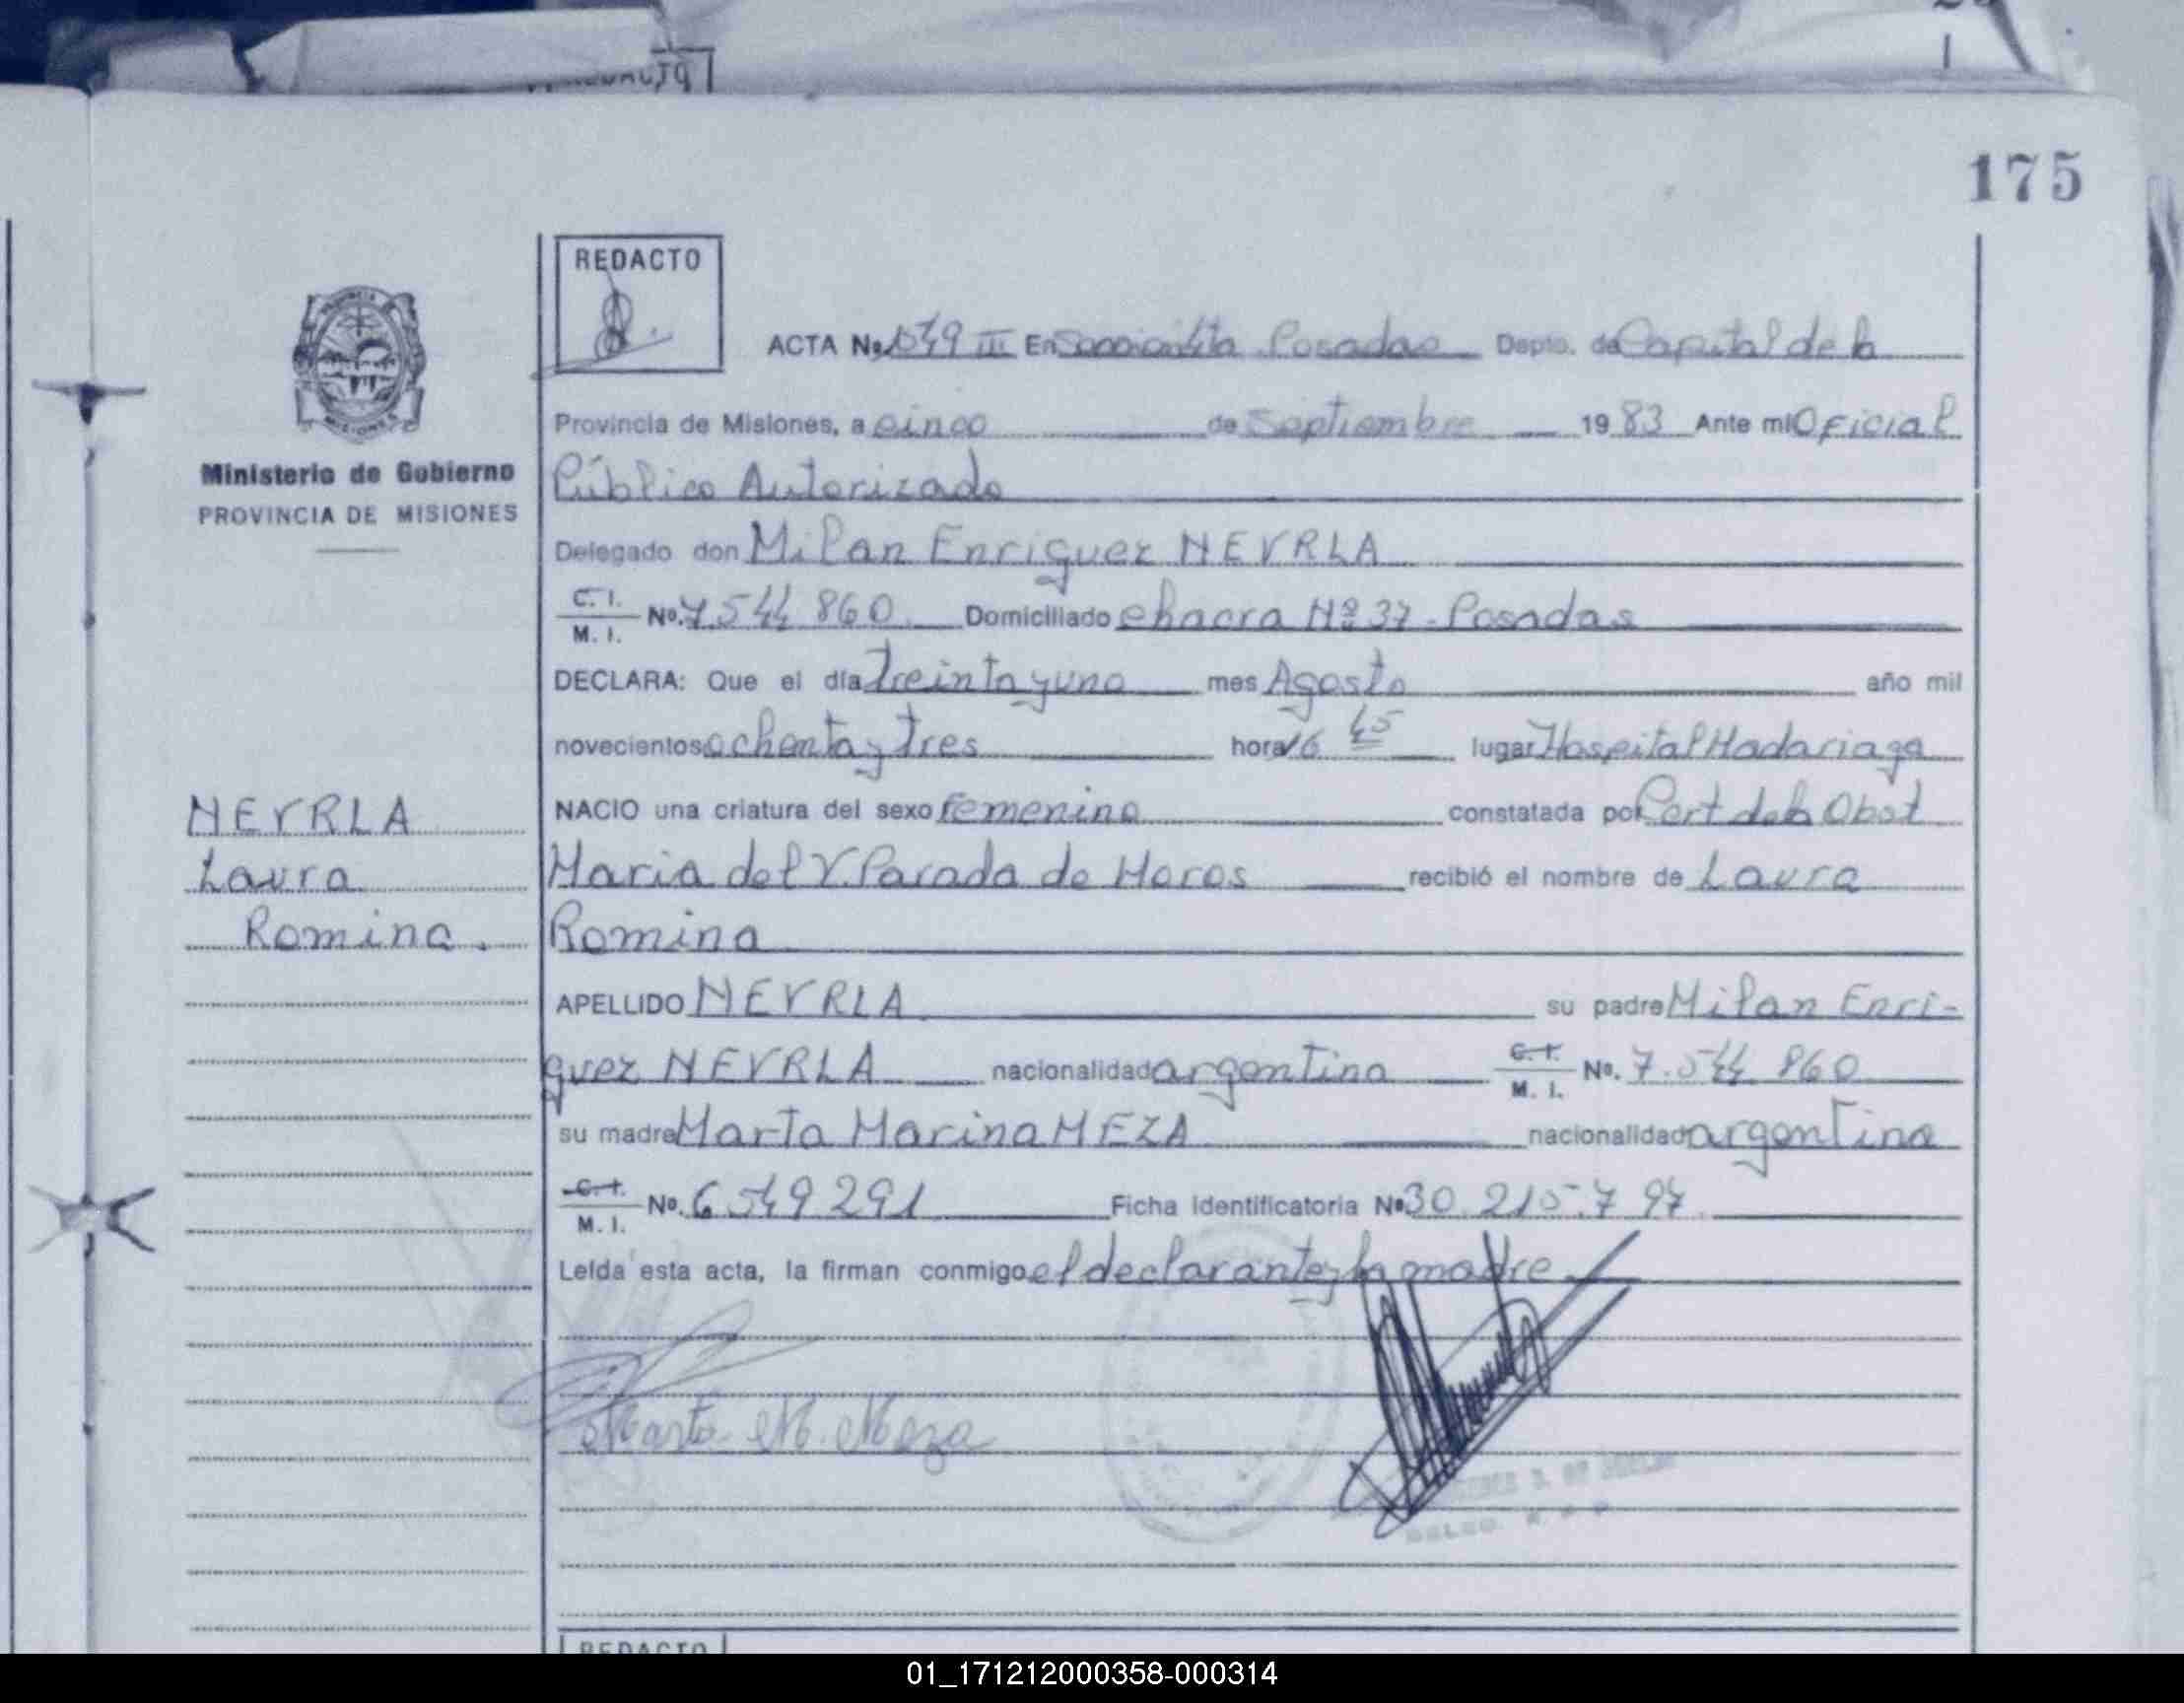 175
REDACTO
ACTA Nº 1049 III En Posadas Depto. de Capital de la
Provincia de Misiones, a cinco de Septiembre 1983 Ante mi Oficial
Público Autorizado
Ministerio de Gobierno
PROVINCIA DE MISIONES
Delegado don Milan Enriquez NEVRLA
C. I. M. I. Nº. 7.544 860 Domiciliado chacra Nº 37 - Posadas
DECLARA: Que el día Treinta y uno mes Agosto año mil
novecientos ochenta y Tres hora 16 45 lugar Hospital Madariaga
NEVRLA
Laura
Romina.
NACIO una criatura del sexo Femenino constatada por Cert de la Obst
Maria del V. Parada de Horos recibió el nombre de Laura
Romina
APELLIDO NEVRLA su padre Milan Enri-
quez NEVRLA nacionalidad argentina C. I. M. I. Nº. 7.544 860
su madre Marta Marina MEZA nacionalidad argentina
C. I. M. I. Nº. 6 549 291 Ficha Identificatoria Nº 30.215.797
Leída esta acta, la firman conmigo el declarante y la madre
Marta M. Meza
REDACTO
01_171212000358-000314